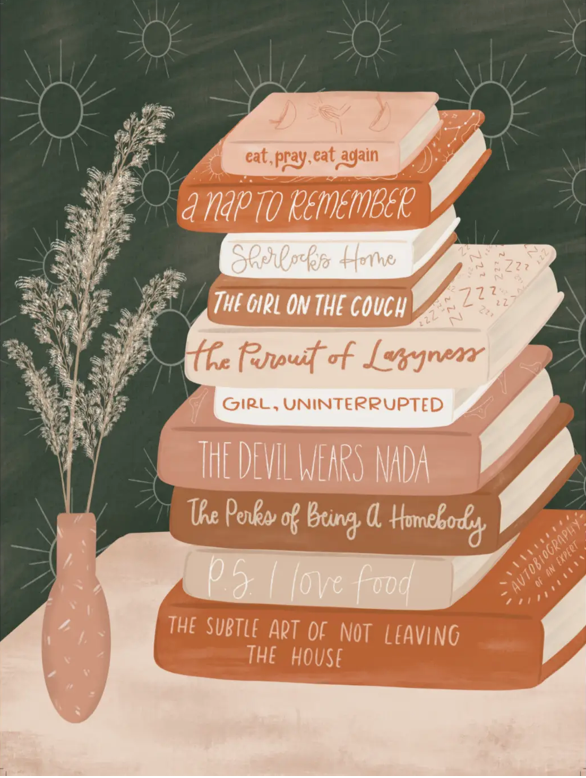 eat, pray, eat again
a NAP TO REMEMBER
Sherlock's Home
THE GIRL ON THE COUCH
zzz
the Pursuit of Lazyness
GIRL, UNINTERRUPTED
THE DEVIL WEARS NADA
The Perks of Being A Homebody
P.S. I love food
AUTOBIOGRAPHY
OF AN EXPERT
THE SUBTLE ART OF NOT LEAVING
THE HOUSE